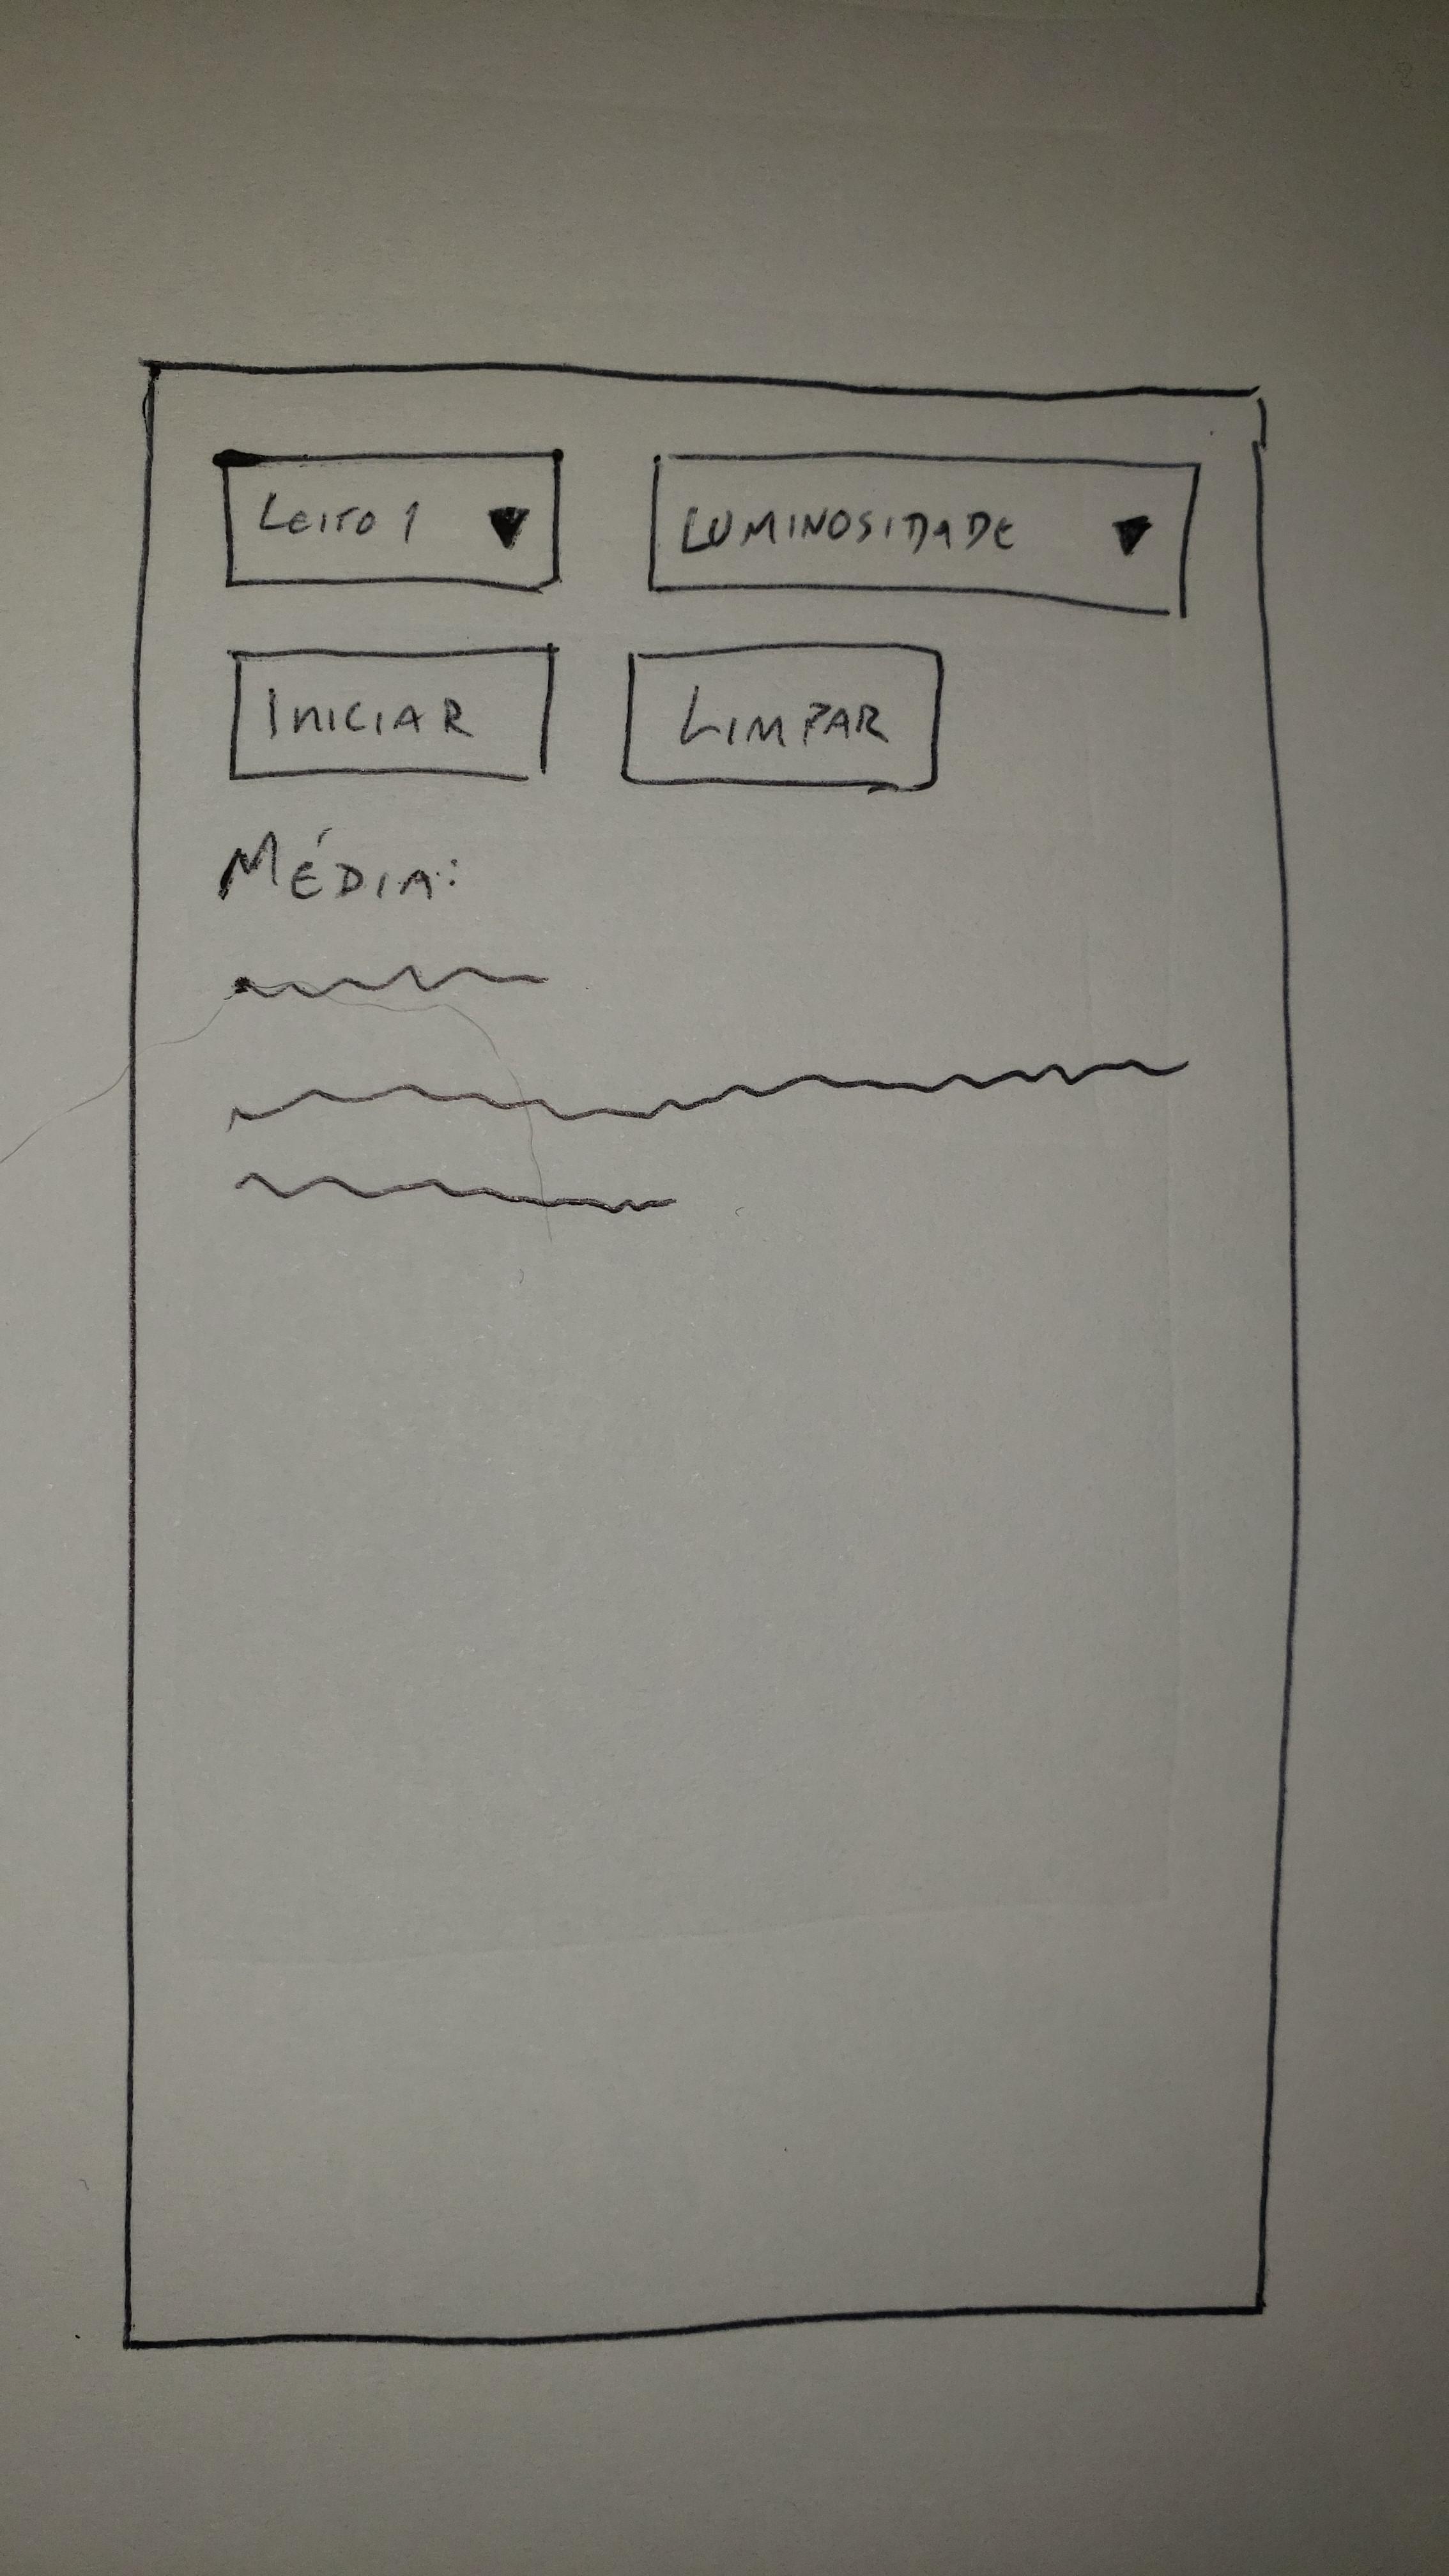 Leito 1
LUMINOSIDADE
INICIAR
LIMPAR
MÉDIA: